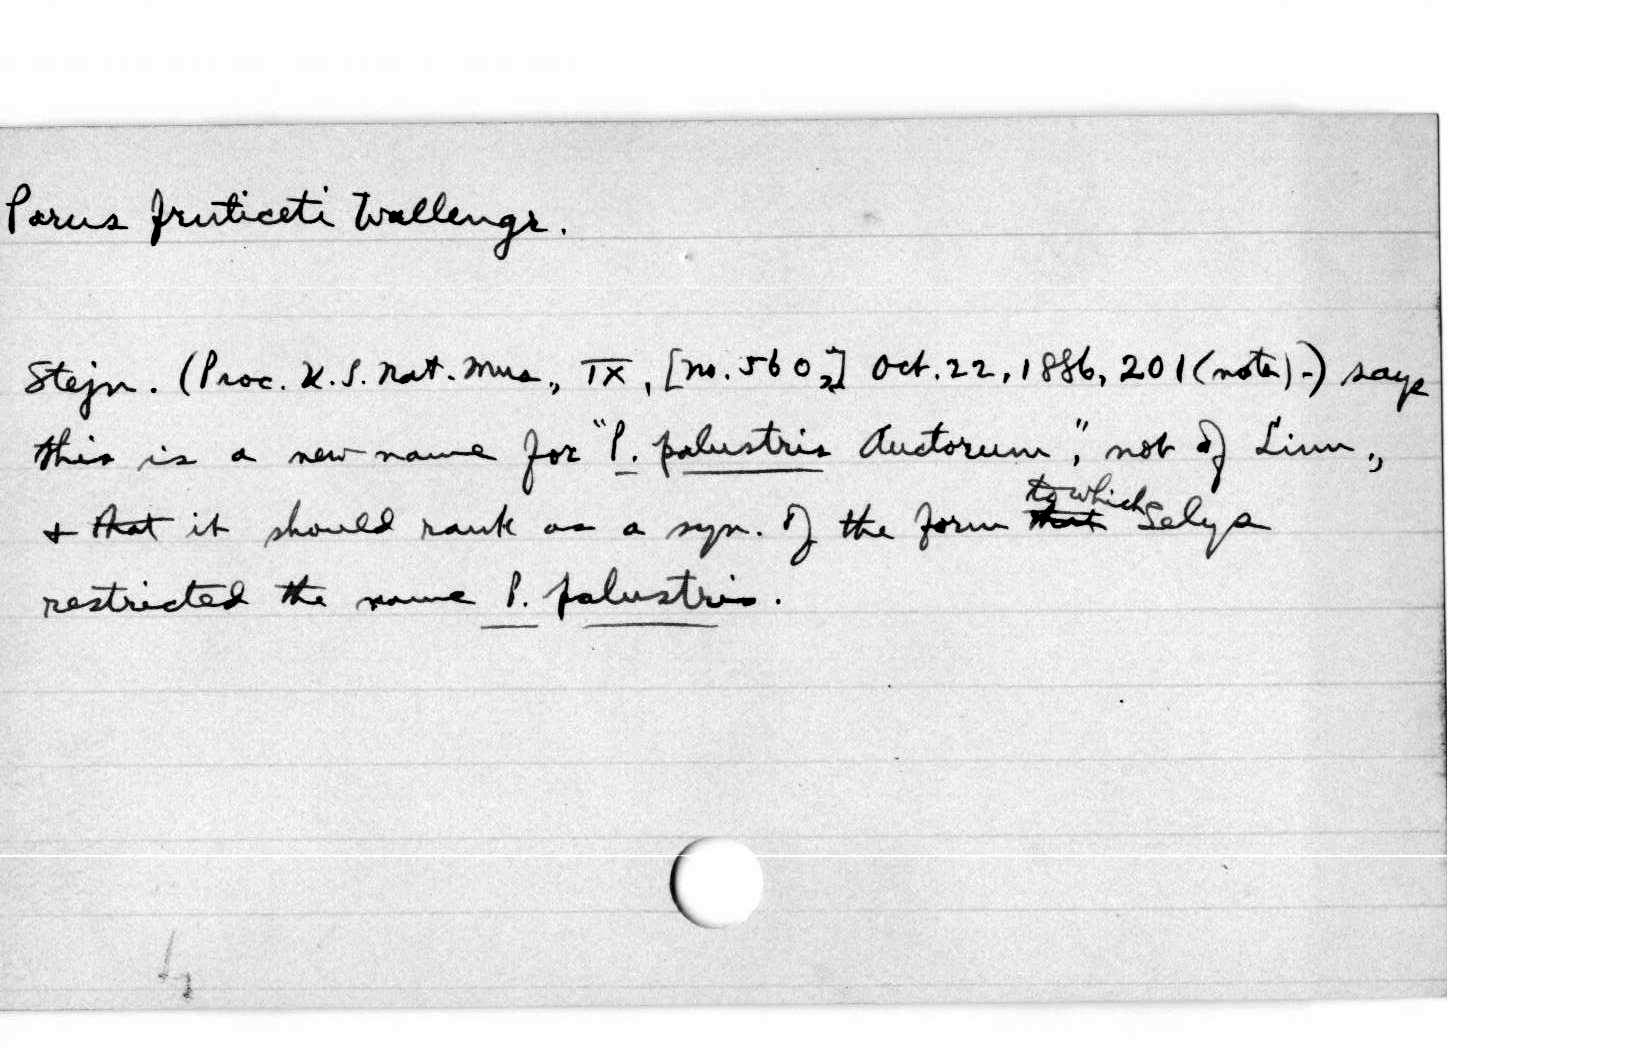 Parus fruticeti Wallengr.
Stejn. (Proc. U.S. Nat. Mus., IX, [no. 560,] Oct. 22, 1886, 201 (note).) says
this is a new name for "P. palustris Auctorum", not of Linn.,
+ that it should rank as a syn. of the form to which Selys
restricted the name P. palustris.